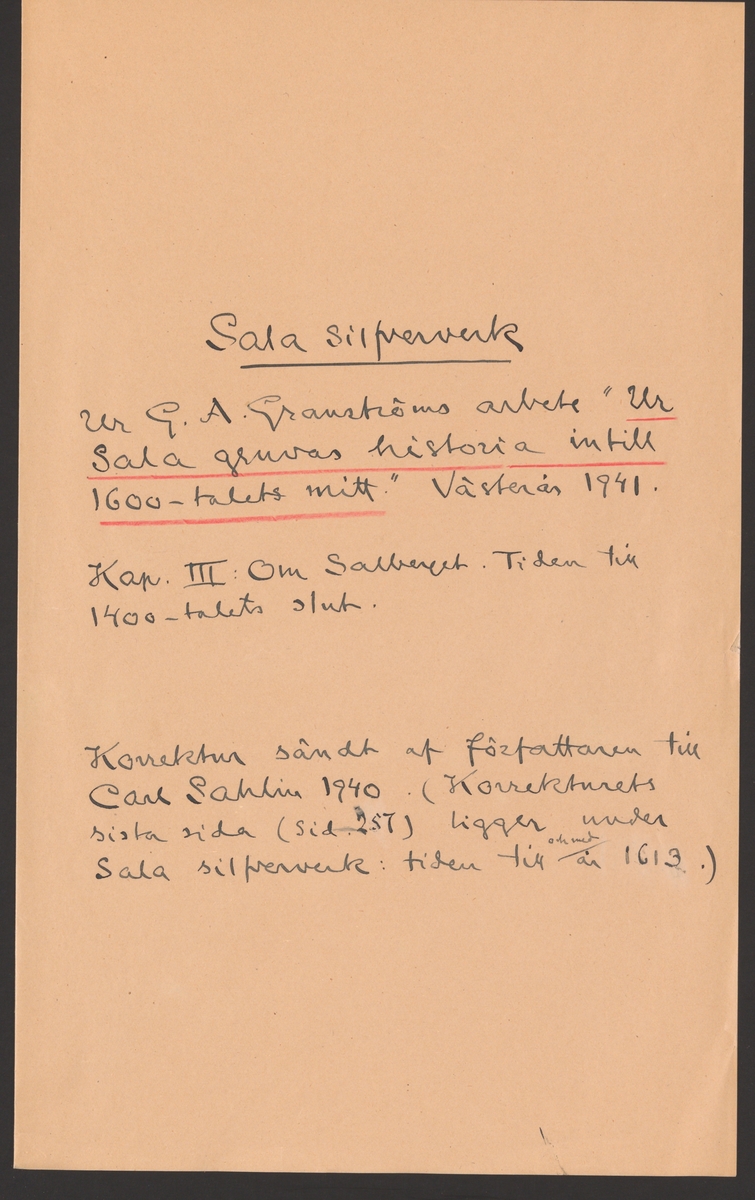 Sala Silfververk
Ur G. A. Granströms arbete "Ur
Sala gruvas historia intill
1600-talets mitt." Västerås 1941.
Kap. III: Om Salberget. Tiden till
1400-talets slut.
Korrektur sändt af författaren till
Carl Sahlin 1940. (Korrekturets
sista sida (Sid. 257) ligger under
Sala silfververk: tiden till och med år 1613.)